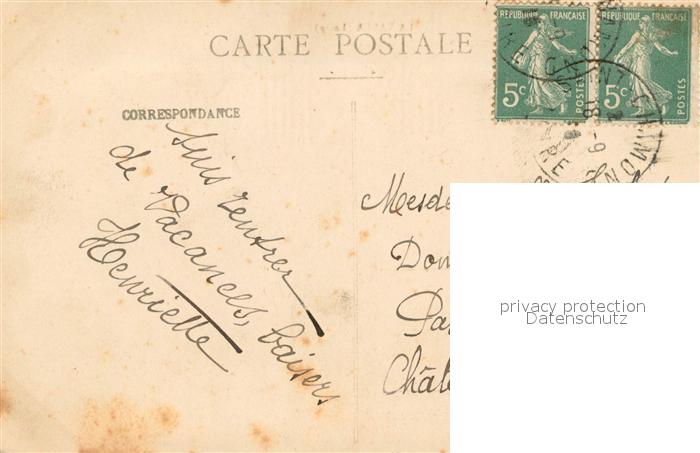 CARTE POSTALE
REPUBLIQUE FRANÇAISE
5c
POSTES
REPUBLIQUE FRANÇAISE
5c
POSTES
CORRESPONDANCE
suis rentrer
de Vacances, baisers
Henriette
Mesde
Dom
Pa
Chât
privacy protection
Datenschutz